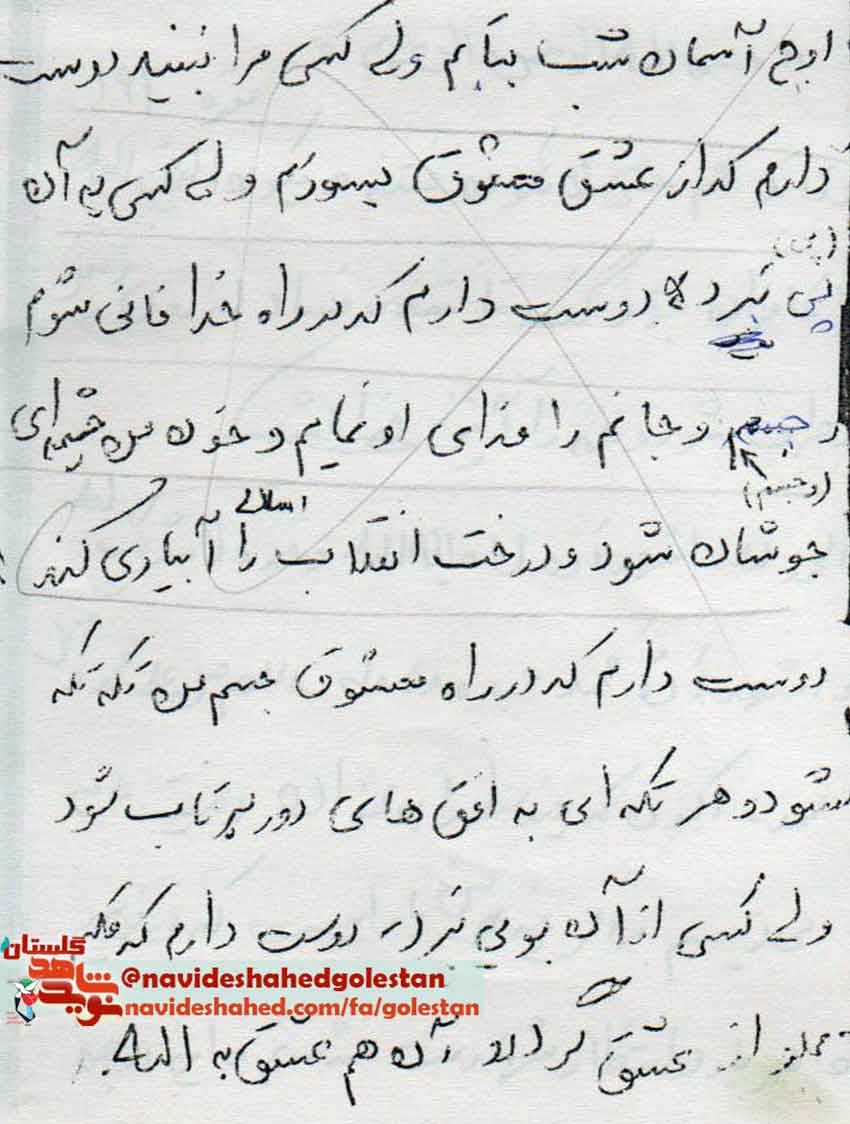 اوج آسمان شب بتابم ولی کسی مرا نبیند دوست
دارم که از عشق معشوق بسوزم ولی کسی به آن
(پی)
پی نبرد دوست دارم که در راه خدا فانی شوم
و جسم و جانم را فدای او نمایم و خون من چشمه ای
(و جسم)
اسلامی
جوشان شود و درخت انقلاب را آبیاری کند
دوست دارم که در راه معشوق جسم من تکه تکه
شود و هر تکه ای به افق های دور پرتاب شود
ولی کسی از آن بویی نبرد دوست دارم که قلبم
مملو از عشق گردد آن هم عشق به الله.
گلستان
شاهد
نوید
@navideshahedgolestan
navideshahed.com/fa/golestan